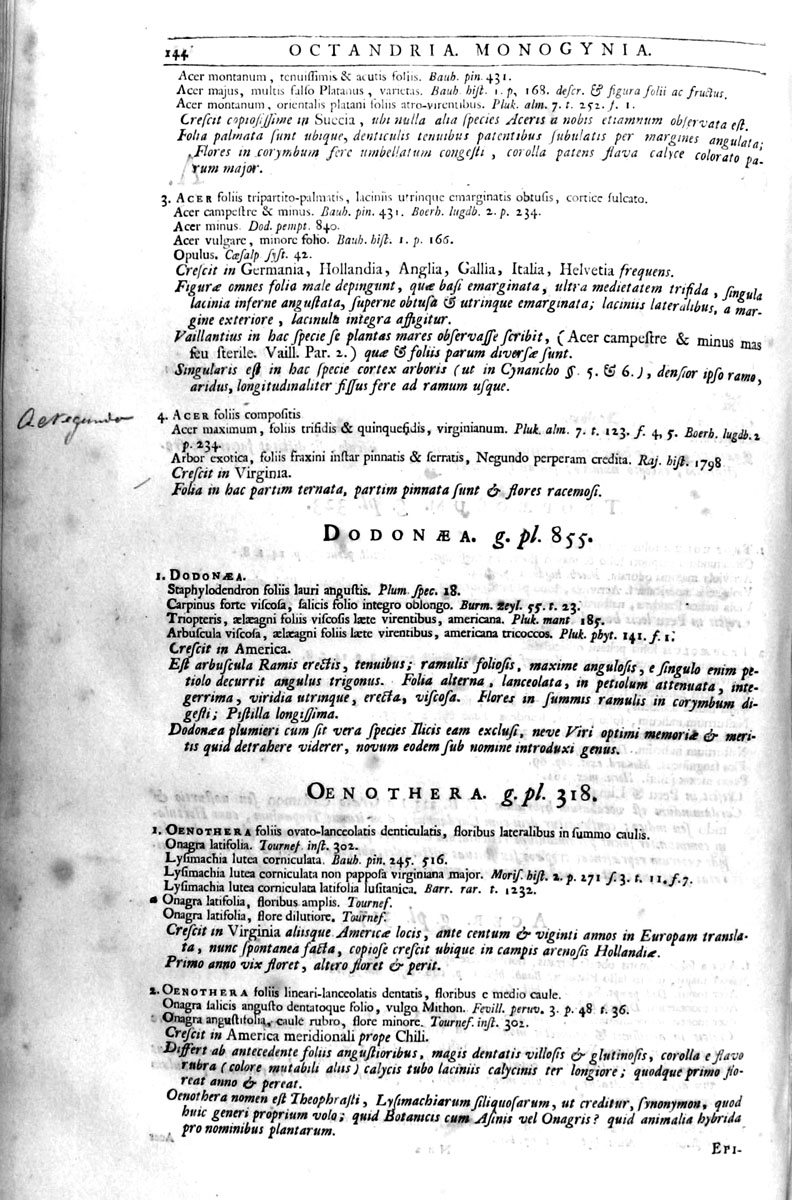 144 OCTANDRIA. MONOGYNIA.
Acer montanum, tenuiſſimis & acutis foliis. Bauh. pin. 431.
Acer majus, multis falſo Platanus, varietas. Bauh. hiſt. 1. p, 168. deſcr. & figura folii ac fructus.
Acer montanum, orientalis platani foliis atro-virentibus. Pluk. alm. 7. t. 252. f. 1.
Creſcit copioſiſſime in Suecia, ubi nulla alia ſpecies Aceris a nobis etiamnum obſervata eſt.
Folia palmata ſunt ubique, denticulis tenuibus patentibus ſubulatis per margines angulata;
Flores in corymbum fere umbellatum congeſti, corolla patens flava calyce colorato pa-
rum major.
3. ACER foliis tripartito-palmatis, laciniis utrinque emarginatis obtuſis, cortice ſulcato.
Acer campeſtre & minus. Bauh. pin. 431. Boerh. lugdb. 2. p. 234.
Acer minus. Dod. pempt. 840.
Acer vulgare, minore folio. Bauh. hiſt. 1. p. 166.
Opulus. Cæſalp ſyſt. 42.
Creſcit in Germania, Hollandia, Anglia, Gallia, Italia, Helvetia frequens.
Figuræ omnes folia male depingunt, quæ baſi emarginata, ultra medietatem trifida, ſingula
lacinia inferne anguſtata, ſuperne obtuſa & utrinque emarginata; laciniis lateralibus, a mar-
gine exteriore, lacinula integra affigitur.
Vaillantius in hac ſpecie ſe plantas mares obſervaſſe ſcribit, (Acer campeſtre & minus mas
ſeu ſterile. Vaill. Par. 2.) quæ & foliis parum diverſæ ſunt.
Singularis eſt in hac ſpecie cortex arboris (ut in Cynancho §. 5. & 6.), denſior ipſo ramo,
aridus, longitudinaliter fiſſus fere ad ramum uſque.
Acernegundo
4. ACER foliis compoſitis
Acer maximum, foliis trifidis & quinquefidis, virginianum. Pluk. alm. 7. t. 123. f. 4, 5. Boerh. lugdb. 2
p. 234.
Arbor exotica, foliis fraxini inſtar pinnatis & ſerratis, Negundo perperam credita. Raj. hiſt. 1798
Creſcit in Virginia.
Folia in hac partim ternata, partim pinnata ſunt & flores racemoſi.
DODONÆA. g. pl. 855.
1. DODONÆA.
Staphylodendron foliis lauri anguſtis. Plum. ſpec. 18.
Carpinus forte viſcoſa, ſalicis folio integro oblongo. Burm. zeyl. 55. t. 23.
Triopteris, ælæagni foliis viſcoſis læte virentibus, americana. Pluk. mant 185.
Arbuſcula viſcoſa, ælæagni foliis læte virentibus, americana tricoccos. Pluk. phyt. 141. f. 1.
Creſcit in America.
Eſt arbuſcula Ramis erectis, tenuibus; ramulis folioſis, maxime anguloſis, e ſingulo enim pe-
tiolo decurrit angulus trigonus. Folia alterna, lanceolata, in petiolum attenuata, inte-
gerrima, viridia utrinque, erecta, viſcoſa. Flores in ſummis ramulis in corymbum di-
geſti; Piſtilla longiſſima.
Dodonæa plumieri cum ſit vera ſpecies Ilicis eam excluſi, neve Viri optimi memoriæ & meri-
tis quid detrahere viderer, novum eodem ſub nomine introduxi genus.
OENOTHERA. g. pl. 318.
1. OENOTHERA foliis ovato-lanceolatis denticulatis, floribus lateralibus in ſummo caulis.
Onagra latifolia. Tournef. inſt. 302.
Lyſimachia lutea corniculata. Bauh. pin. 245. 516.
Lyſimachia lutea corniculata non pappoſa virginiana major. Moriſ. hiſt. 2. p. 271 ſ. 3. t. 11. f. 7.
Lyſimachia lutea corniculata latifolia luſitanica. Barr. rar. t. 1232.
Onagra latifolia, floribus amplis. Tournef.
Onagra latifolia, flore dilutiore. Tournef.
Creſcit in Virginia aliisque Americæ locis, ante centum & viginti annos in Europam transla-
ta, nunc ſpontanea facta, copioſe creſcit ubique in campis arenoſis Hollandiæ.
Primo anno vix floret, altero floret & perit.
2. OENOTHERA foliis lineari-lanceolatis dentatis, floribus e medio caule.
Onagra ſalicis anguſto dentatoque folio, vulgo Mithon. Fevill. peruv. 3. p. 48 t. 36.
Onagra anguſtifolia, caule rubro, flore minore. Tournef. inſt. 302.
Creſcit in America meridionali prope Chili.
Differt ab antecedente foliis anguſtioribus, magis dentatis villoſis & glutinoſis, corolla e flavo
rubra (colore mutabili aliis) calycis tubo laciniis calycinis ter longiore; quodque primo flo-
reat anno & pereat.
Oenothera nomen eſt Theophraſti, Lyſimachiarum ſiliquoſarum, ut creditur, ſynonymon, quod
huic generi proprium volo; quid Botanicis cum Aſinis vel Onagris? quid animalia hybrida
pro nominibus plantarum.
EPI-